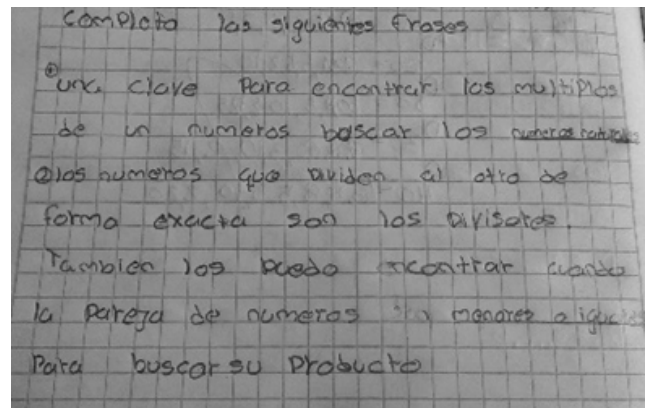 completo las siguientes frases
una clave para encontrar los multiplos
de un numeros buscar los numeros naturales
los numeros que dividen al otro de
forma exacta son los divisores.
Tambien los puedo encontrar cuando
la pareja de numeros menores o iguales
Para buscar su producto